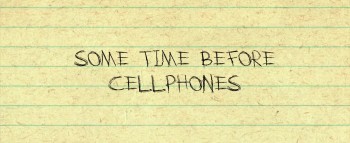 SOME TIME BEFORE
CELLPHONES